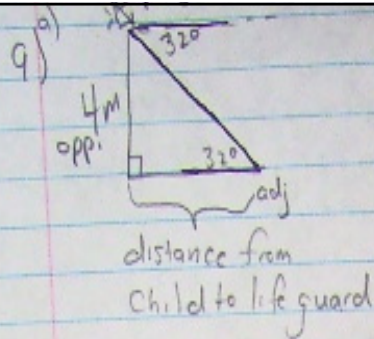 a)
9)
32°
4m
opp.
32°
adj
distance from
Child to life guard